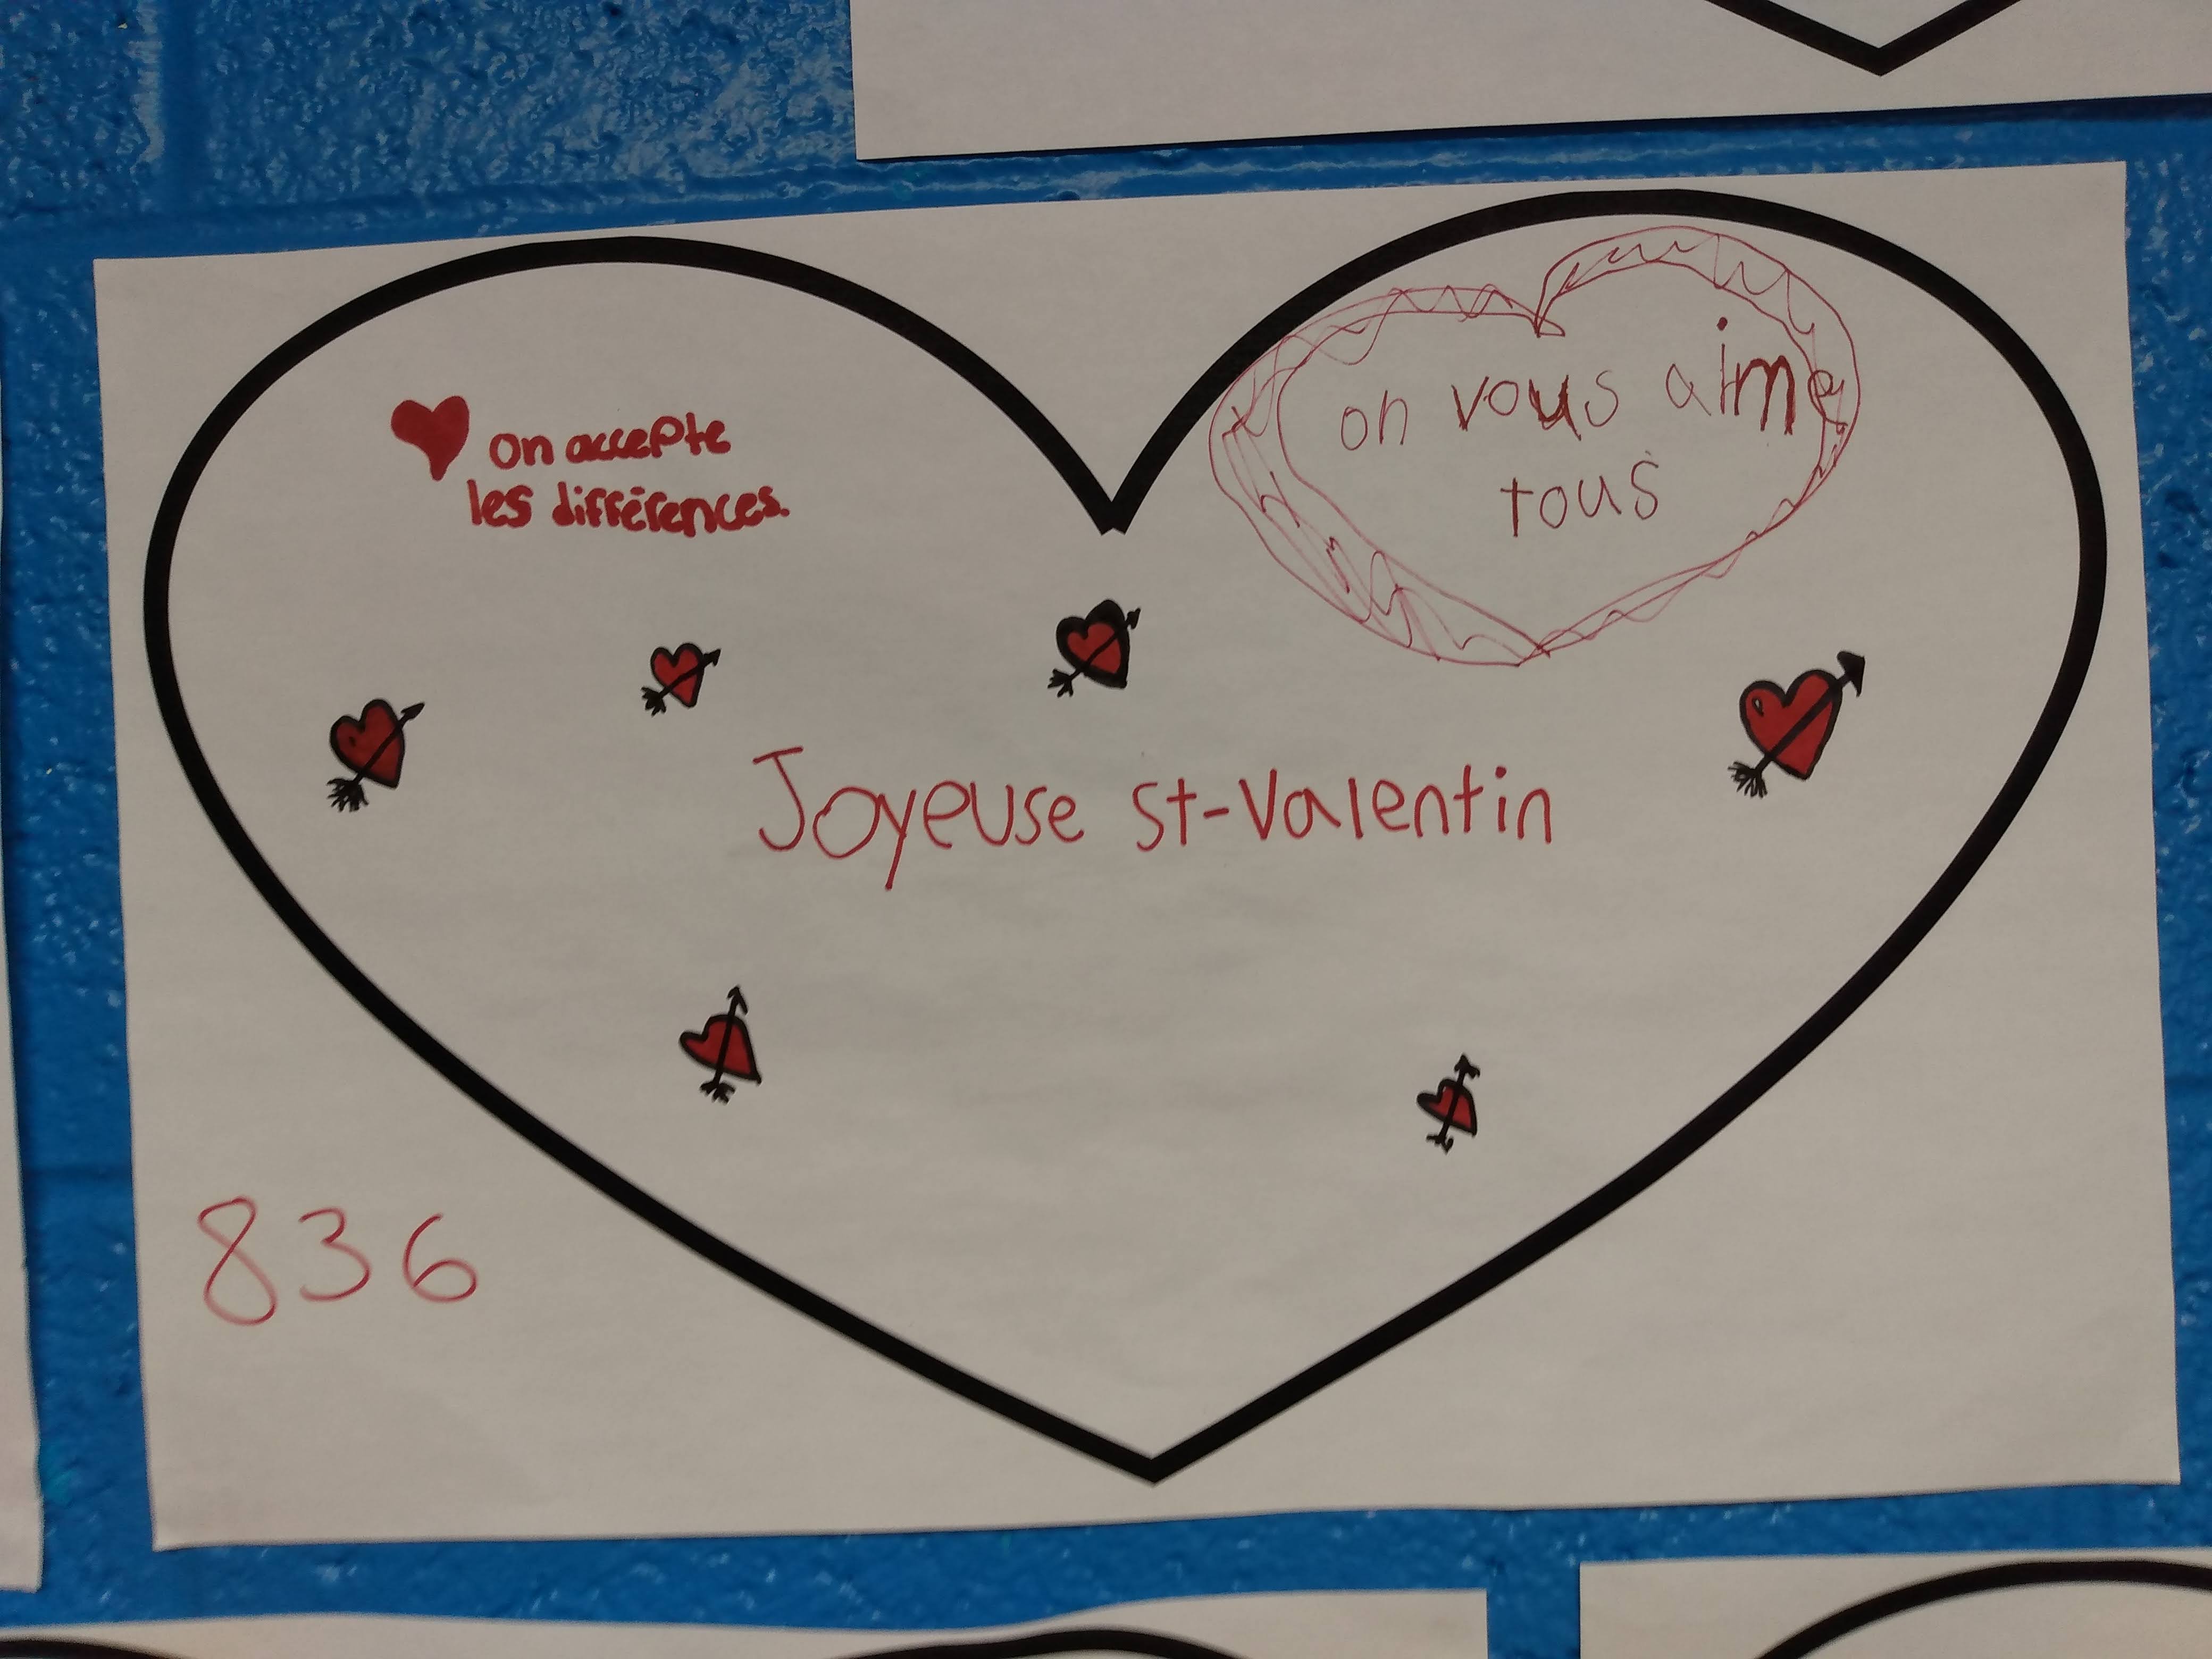 on accepte
les différences.
on vous aime
tous
Joyeuse st-Valentin
836